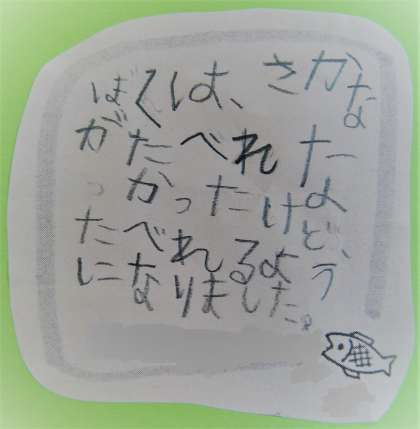 ぼくは、さかな
がたべれな
かったけど、
たべれるよう
になりました。